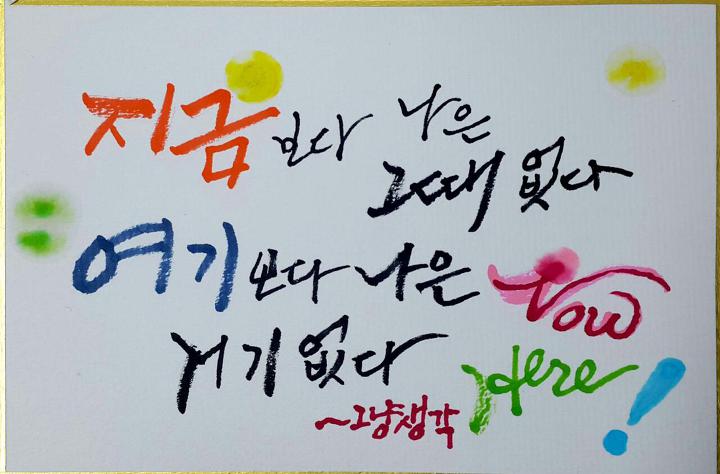 지금보다 나은
그때 없다
여기보다 나은 Now
거기 없다 Here!
~그냥생각